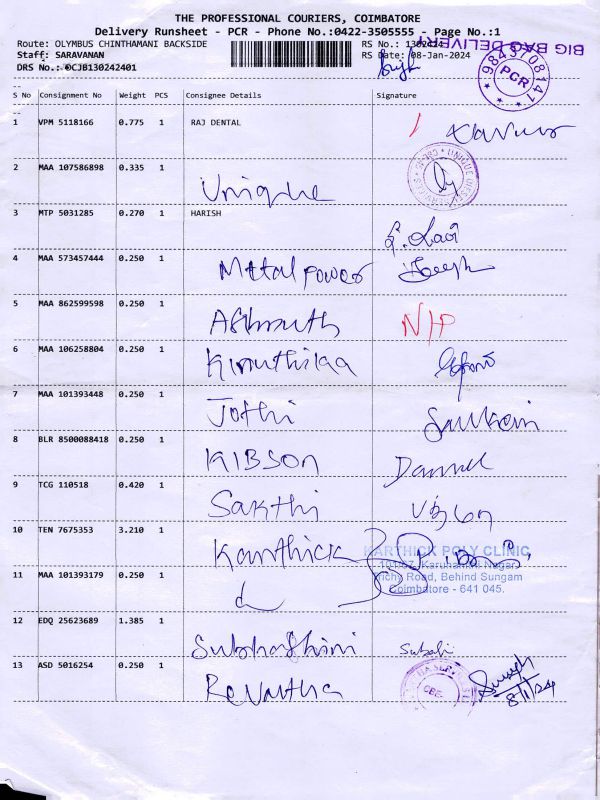 THE PROFESSIONAL COURIERS, COIMBATORE
Delivery Runsheet - PCR - Phone No.:0422-3505555 - Page No.:1
Route: OLYMBUS CHINTHAMANI BACKSIDE
RS No.: 1302424
BIG BAG DELIVERY
Staff: SARAVANAN
RS Date: 08-Jan-2024
DRS No.: OCJB130242401
9843708141
PCR
S No Consignment No Weight PCS Consignee Details Signature
1 VPM 5118166 0.775 1 RAJ DENTAL
2 MAA 107586898 0.335 1 Unique
3 MTP 5031285 0.270 1 HARISH
4 MAA 573457444 0.250 1 Metal power Joseph
5 MAA 862599598 0.250 1 N/P
6 MAA 106258804 0.250 1 Kiruthikaa
7 MAA 101393448 0.250 1 Jothi
8 BLR 8500088418 0.250 1 KIBSON
9 TCG 110518 0.420 1 Sakthi
10 TEN 7675353 3.210 1 Karthick
KARTHICK POLY CLINIC
11 MAA 101393179 0.250 1
Trichy Road, Behind Sungam
Coimbatore - 641 045.
12 EDQ 25623689 1.385 1 Subhashini
13 ASD 5016254 0.250 1 Revatha
CBE
8/1/24